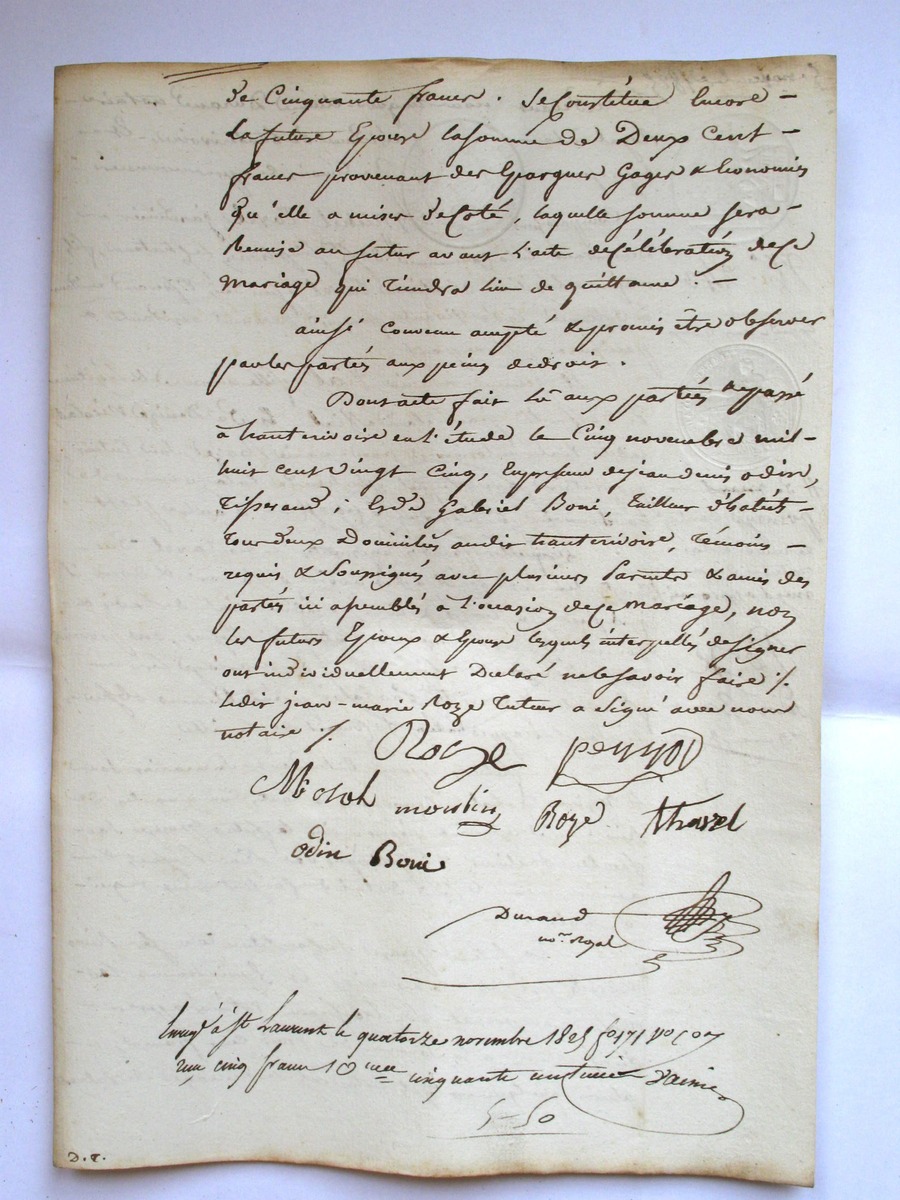 de Cinquante francs. se Constitue Encore –
La future Epouse la somme de Deux Cent –
francs provenant des Epargnes Gages & Economies
qu'elle a mises de Coté, laquelle somme sera –
Remise au futur avant l'acte de Célébration de Ce
mariage qui Tiendra lieu de quittance. –
ainsi convenu accepté & promis être observer
par les partés aux peines de droit.
Dont acte fait Lû aux partiés & passé
à hauterivoire en l'étude le Cinq novembre mil-
huit cent vingt Cinq, En presence de jean denis odin,
Tisserand; & de Gabriel Boni, Tailleur d'habits –
Tous deux Domiciliés audit hauterivoire, Témoins –
requis & Soussignés avec plusieurs Parents & amis des
partés ici assemblés à l'occasion de Ce mariage, non
les futurs Epoux & Epouse lesquels interpellés de signer
ont individuellement Declaré ne le savoir faire ./.
Ledit jean-marie Roze Tuteur a Signé avec nous
notaire ./.
Roze
moulin Roze thavel
odin Boni
Durand
no.re Royal
Enregé à St Laurent le quatorze novembre 1825 fo 171 Vo
reçu cinq francs 10me cinquante centimes
5-50
D.T.